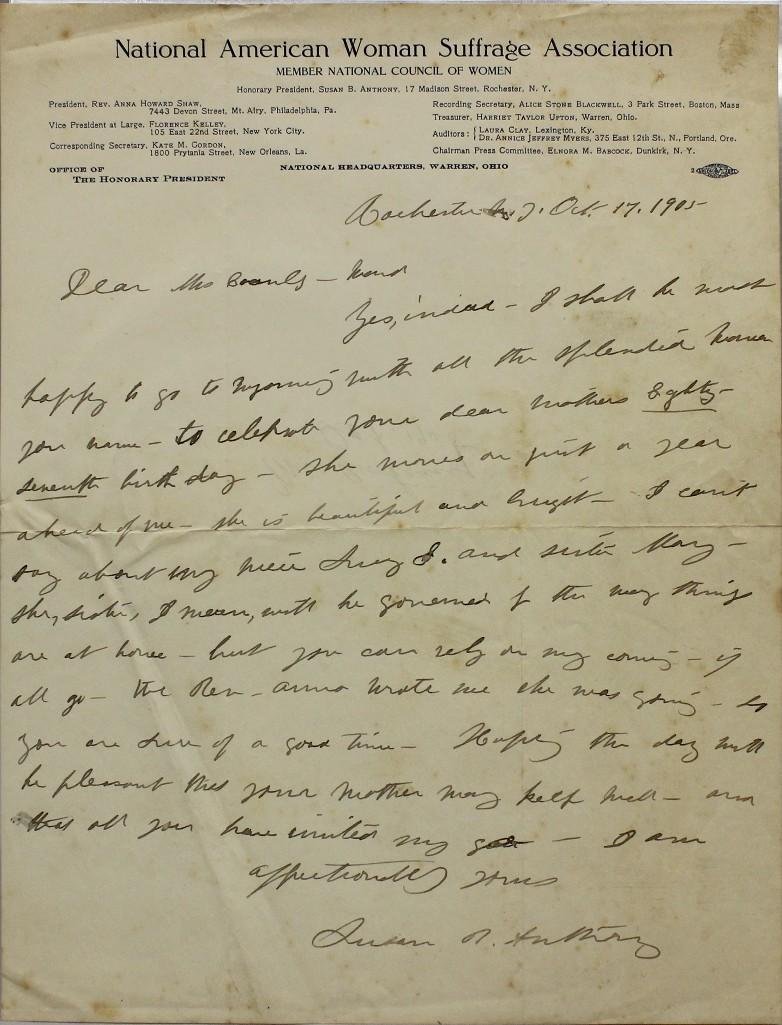 National American Woman Suffrage Association
MEMBER NATIONAL COUNCIL OF WOMEN
Honorary President, SUSAN B. ANTHONY, 17 Madison Street, Rochester, N. Y.
President, REV. ANNA HOWARD SHAW,
7443 Devon Street, Mt. Airy, Philadelphia, Pa.
Vice President at Large, FLORENCE KELLEY,
105 East 22nd Street, New York City.
Corresponding Secretary, KATE M. GORDON,
1800 Prytania Street, New Orleans, La.
Recording Secretary, ALICE STONE BLACKWELL, 3 Park Street, Boston, Mass
Treasurer, HARRIET TAYLOR UPTON, Warren, Ohio.
Auditors: { LAURA CLAY, Lexington, Ky.
DR. ANNICE JEFFREY MYERS, 375 East 12th St., N., Portland, Ore.
Chairman Press Committee, ELNORA M. BABCOCK, Dunkirk, N. Y.
OFFICE OF
THE HONORARY PRESIDENT
NATIONAL HEADQUARTERS, WARREN, OHIO
Rochester N.Y. Oct. 17, 1905
Dear Mrs
Yes, indeed - I shall be most
happy to go to Wyoming with all the splendid women
you name - to celebrate your dear mothers Eighty-
seventh birth day - she moves on just a year
ahead of me - she is beautiful and bright - I can't
say about my niece Lucy E. and sister Mary -
she, sister, I mean, will be governed by the way things
are at home - but you can rely on my coming - if
all go - the Rev. Anna wrote me she was going - so
you are sure of a good time - Hoping the day will
be pleasant that your mother may keep well - and
that all you have invited may go - I am
affectionately yours
Susan B. Anthony